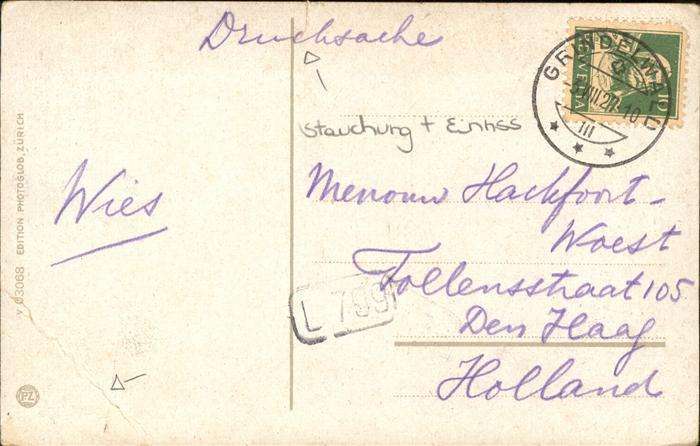 Drucksache
HELVETIA
10
GRINDELWALD
III
Stauchung + Einriss
Wies
Menouw Hackfoort-
Woest
Tollensstraat 105
Den Haag
Holland
L 709
V 03068 EDITION PHOTOGLOB, ZÜRICH
PZ